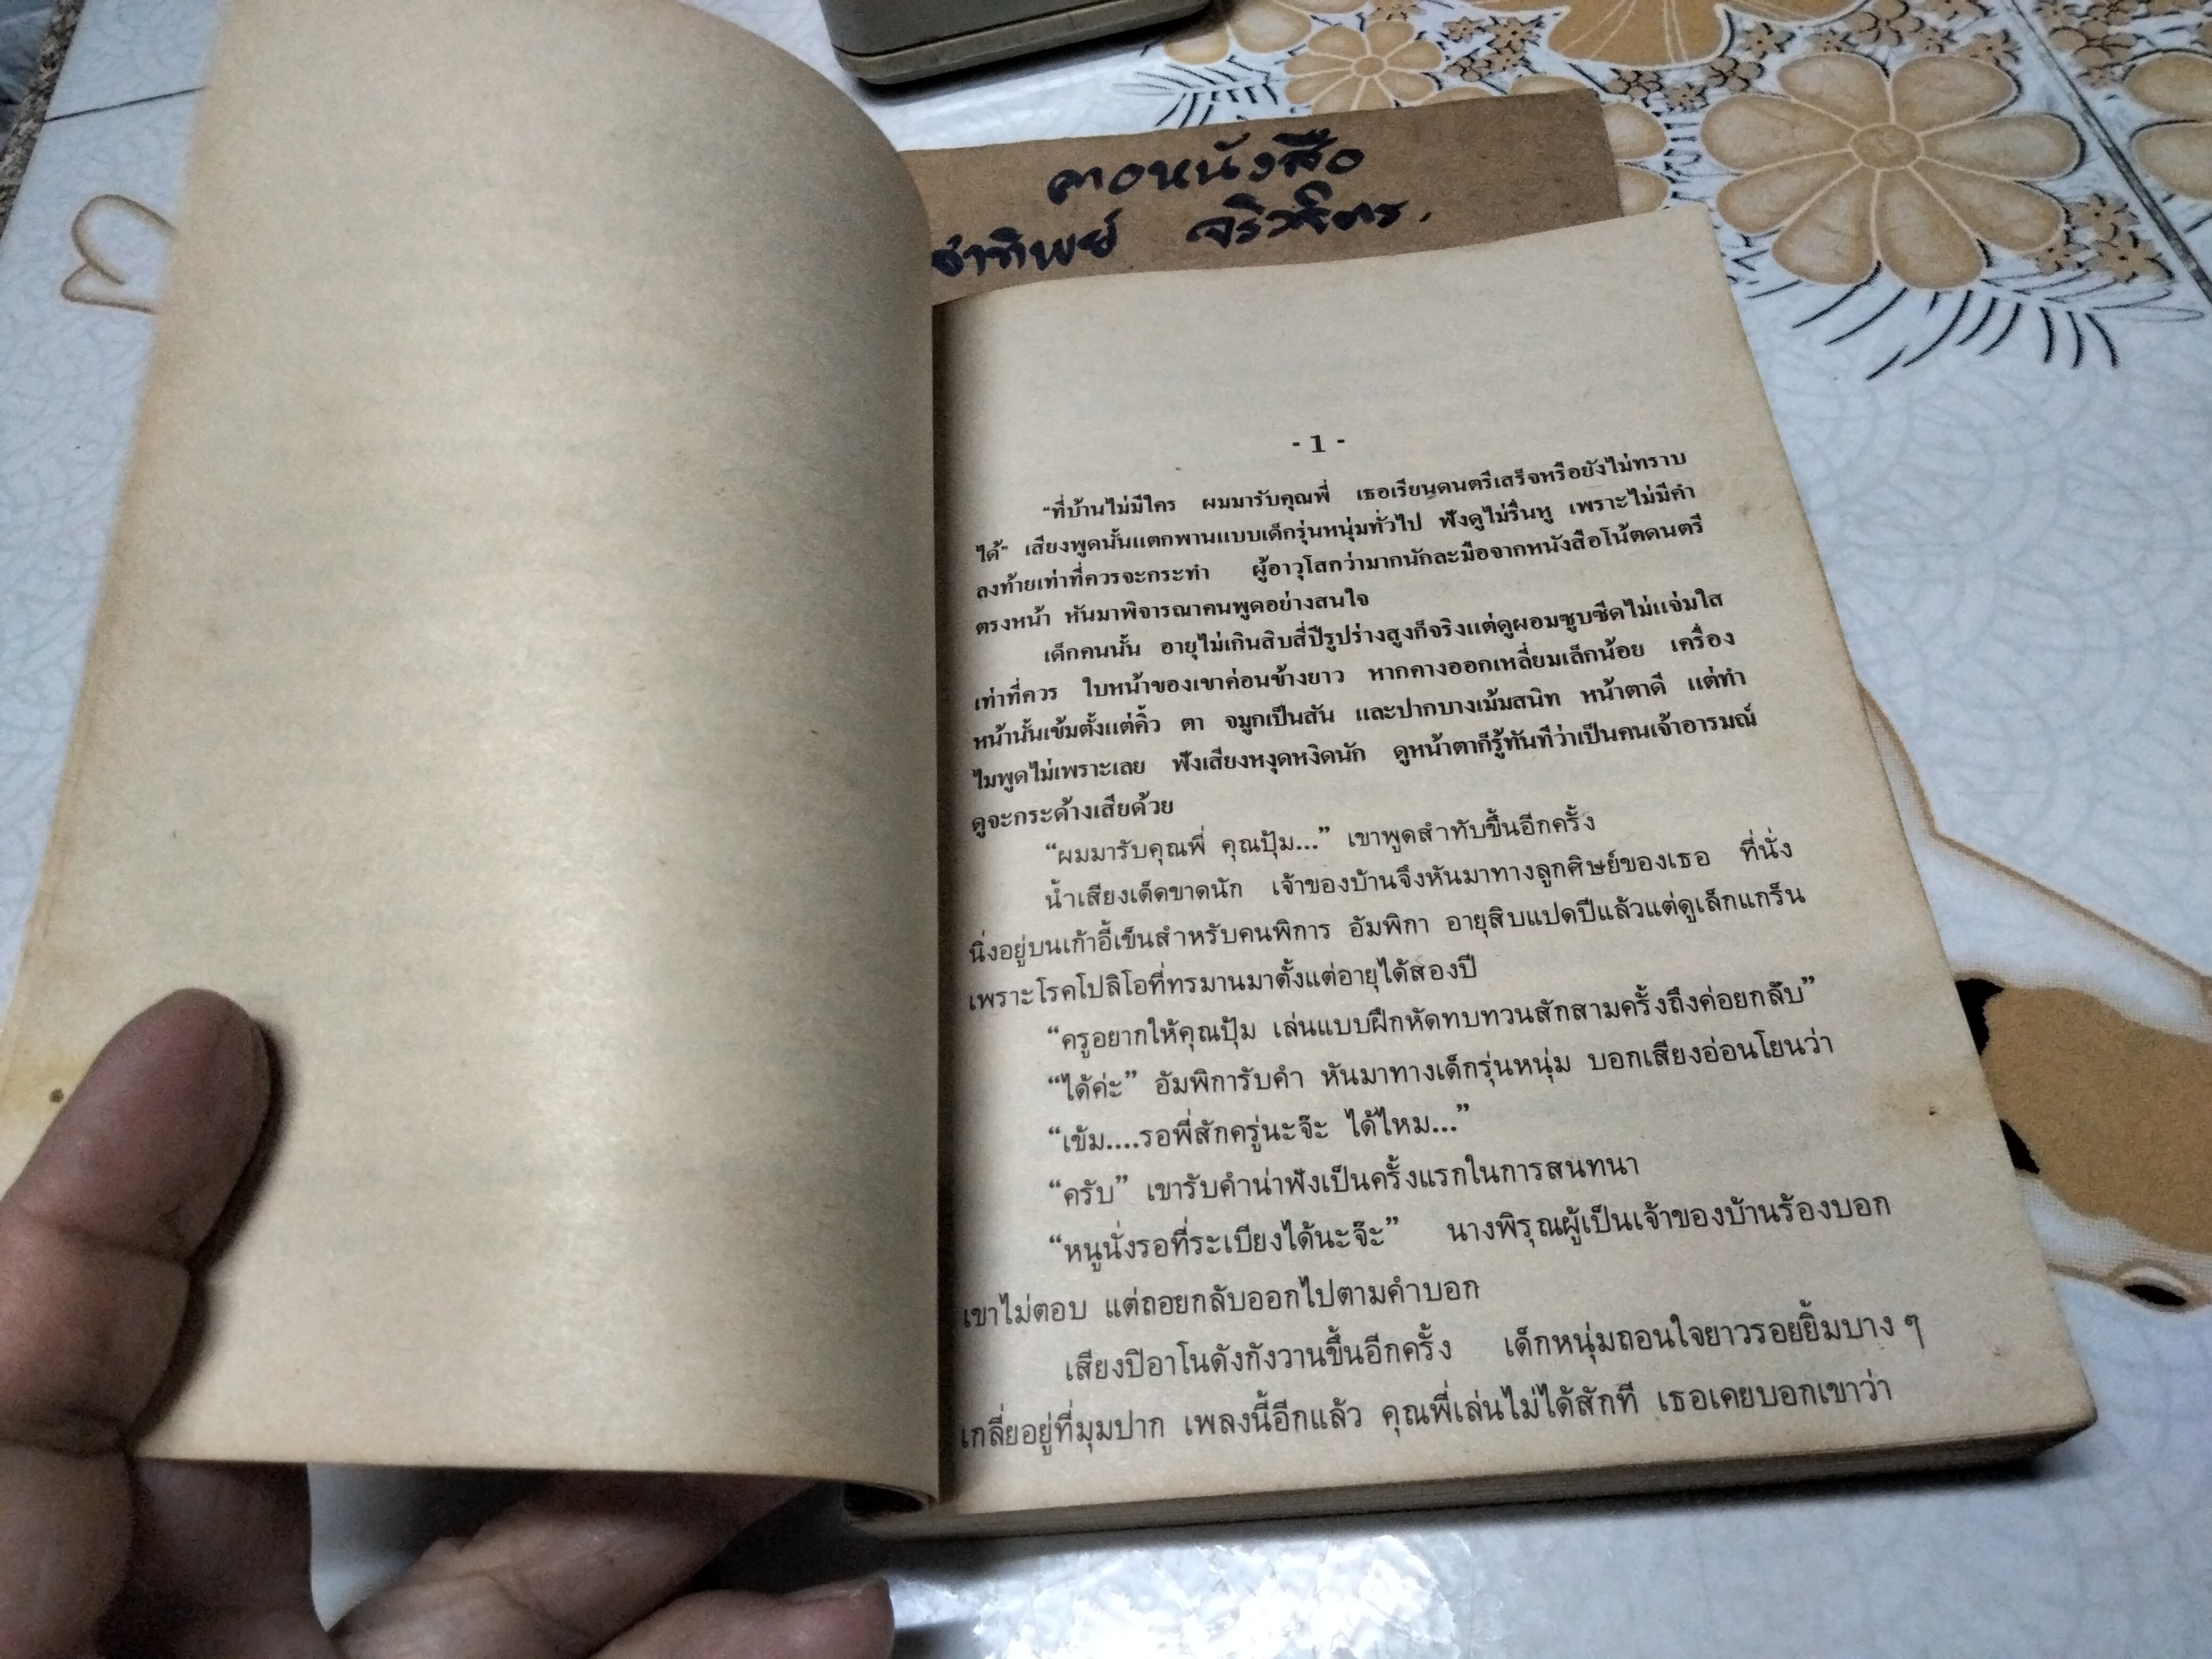 ตาอหนังสือ
ชาทิพย์ จริวจิตร.
- 1 -
“ที่บ้านไม่มีใคร ผมมารับคุณพี่ เธอเรียนดนตรีเสร็จหรือยังไม่ทราบ
ได้” เสียงพูดนั้นแตกพานแบบเด็กรุ่นหนุ่มทั่วไป ฟังดูไม่รื่นหู เพราะไม่มีคำ
ลงท้ายเท่าที่ควรจะกระทำ ผู้อาวุโสกว่ามากนักละมือจากหนังสือโน้ตดนตรี
ตรงหน้า หันมาพิจารณาคนพูดอย่างสนใจ
เด็กคนนั้น อายุไม่เกินสิบสี่ปีรูปร่างสูงก็จริงแต่ดูผอมซูบซีดไม่แจ่มใส
เท่าที่ควร ใบหน้าของเขาค่อนข้างยาว หากคางออกเหลี่ยมเล็กน้อย เครื่อง
หน้านั้นเข้มตั้งแต่คิ้ว ตา จมูกเป็นสัน และปากบางเม้มสนิท หน้าตาดี แต่ทำ
ไมพูดไม่เพราะเลย ฟังเสียงหงุดหงิดนัก ดูหน้าตาก็รู้ทันทีว่าเป็นคนเจ้าอารมณ์
ดูจะกระด้างเสียด้วย
“ผมมารับคุณพี่ คุณปุ้ม...” เขาพูดสำทับขึ้นอีกครั้ง
น้ำเสียงเด็ดขาดนัก เจ้าของบ้านจึงหันมาทางลูกศิษย์ของเธอ ที่นั่ง
นิ่งอยู่บนเก้าอี้เข็นสำหรับคนพิการ อัมพิกา อายุสิบแปดปีแล้วแต่ดูเล็กแกร็น
เพราะโรคโปลิโอที่ทรมานมาตั้งแต่อายุได้สองปี
“ครูอยากให้คุณปุ้ม เล่นแบบฝึกหัดทบทวนสักสามครั้งถึงค่อยกลับ”
“ได้ค่ะ” อัมพิการับคำ หันมาทางเด็กรุ่นหนุ่ม บอกเสียงอ่อนโยนว่า
“เข้ม....รอพี่สักครู่นะจ๊ะ ได้ไหม...”
“ครับ” เขารับคำน่าฟังเป็นครั้งแรกในการสนทนา
“หนูนั่งรอที่ระเบียงได้นะจ๊ะ” นางพิรุณผู้เป็นเจ้าของบ้านร้องบอก
เขาไม่ตอบ แต่ถอยกลับออกไปตามคำบอก
เสียงปิอาโนดังกังวานขึ้นอีกครั้ง เด็กหนุ่มถอนใจยาวรอยยิ้มบาง ๆ
เกลี่ยอยู่ที่มุมปาก เพลงนี้อีกแล้ว คุณพี่เล่นไม่ได้สักที เธอเคยบอกเขาว่า